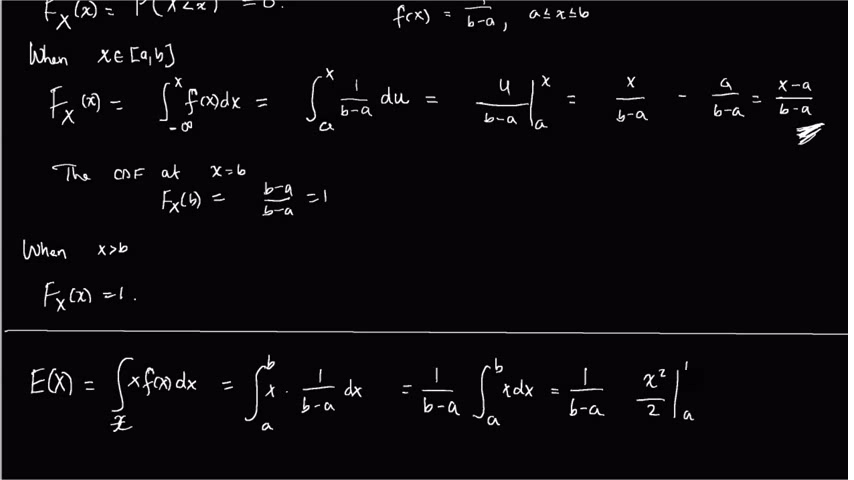 F_X(x) = P(X<x) = 0.
f(x) = 1/(b-a), a ≤ x ≤ b
When x∈[a,b]
F_X(x) = ∫_{-∞}^{x} f(x)dx = ∫_a^x 1/(b-a) du = u/(b-a) |_a^x = x/(b-a) - a/(b-a) = (x-a)/(b-a)
The CDF at x=b
F_X(b) = (b-a)/(b-a) = 1
When x>b
F_X(x) = 1.
E(X) = ∫_x x f(x) dx = ∫_a^b x · 1/(b-a) dx = 1/(b-a) ∫_a^b x dx = 1/(b-a) x²/2 |_a^1